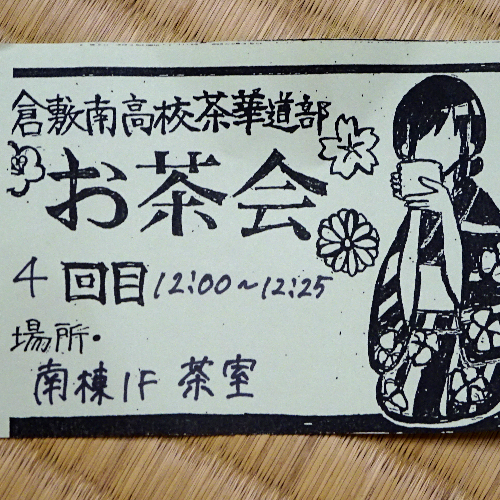 倉敷南高校茶華道部
お茶会
4回目12:00~12:25
場所・
南棟1F 茶室